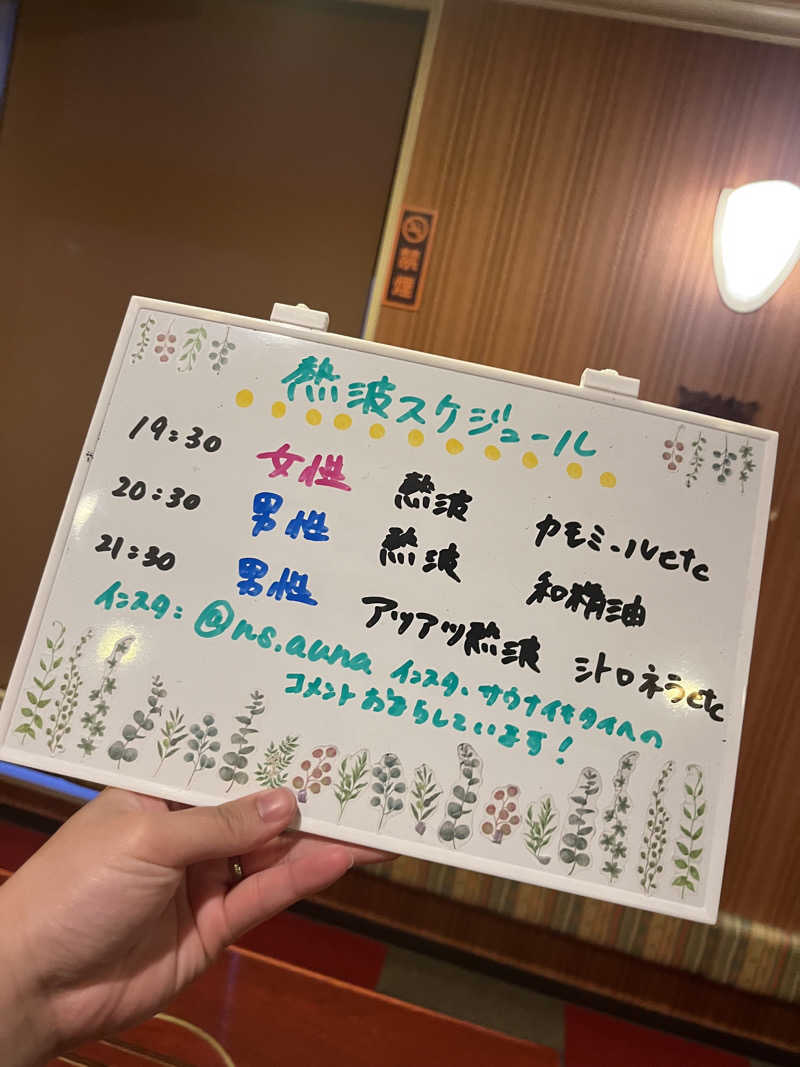 禁煙
熱波スケジュール
19:30 女性 熱波 カモミールetc
20:30 男性 熱波 和精油
21:30 男性 アツアツ熱波 シトロネラetc
インスタ: @ns.auna インスタ、サウナイキタイへの
コメントおまちしています!